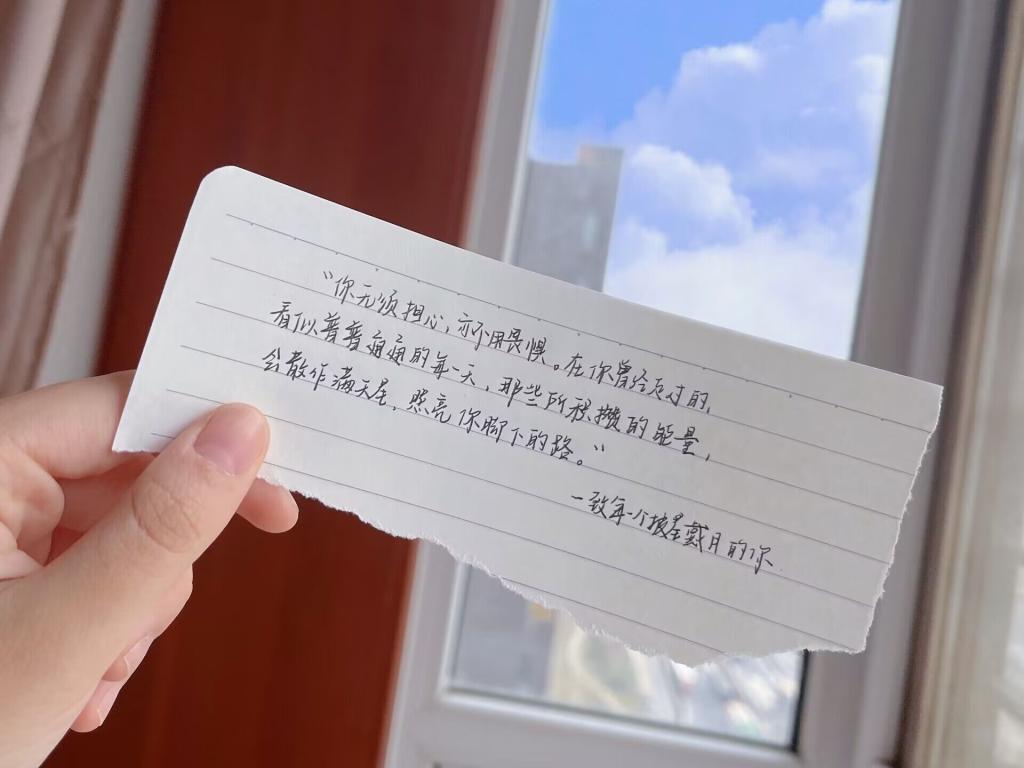 “你无须担心，亦不用畏惧。在你曾经度过的，
看似普普通通的每一天，那些所积攒的能量，
会散作满天星，照亮你脚下的路。”
一致每一个披星戴月的你